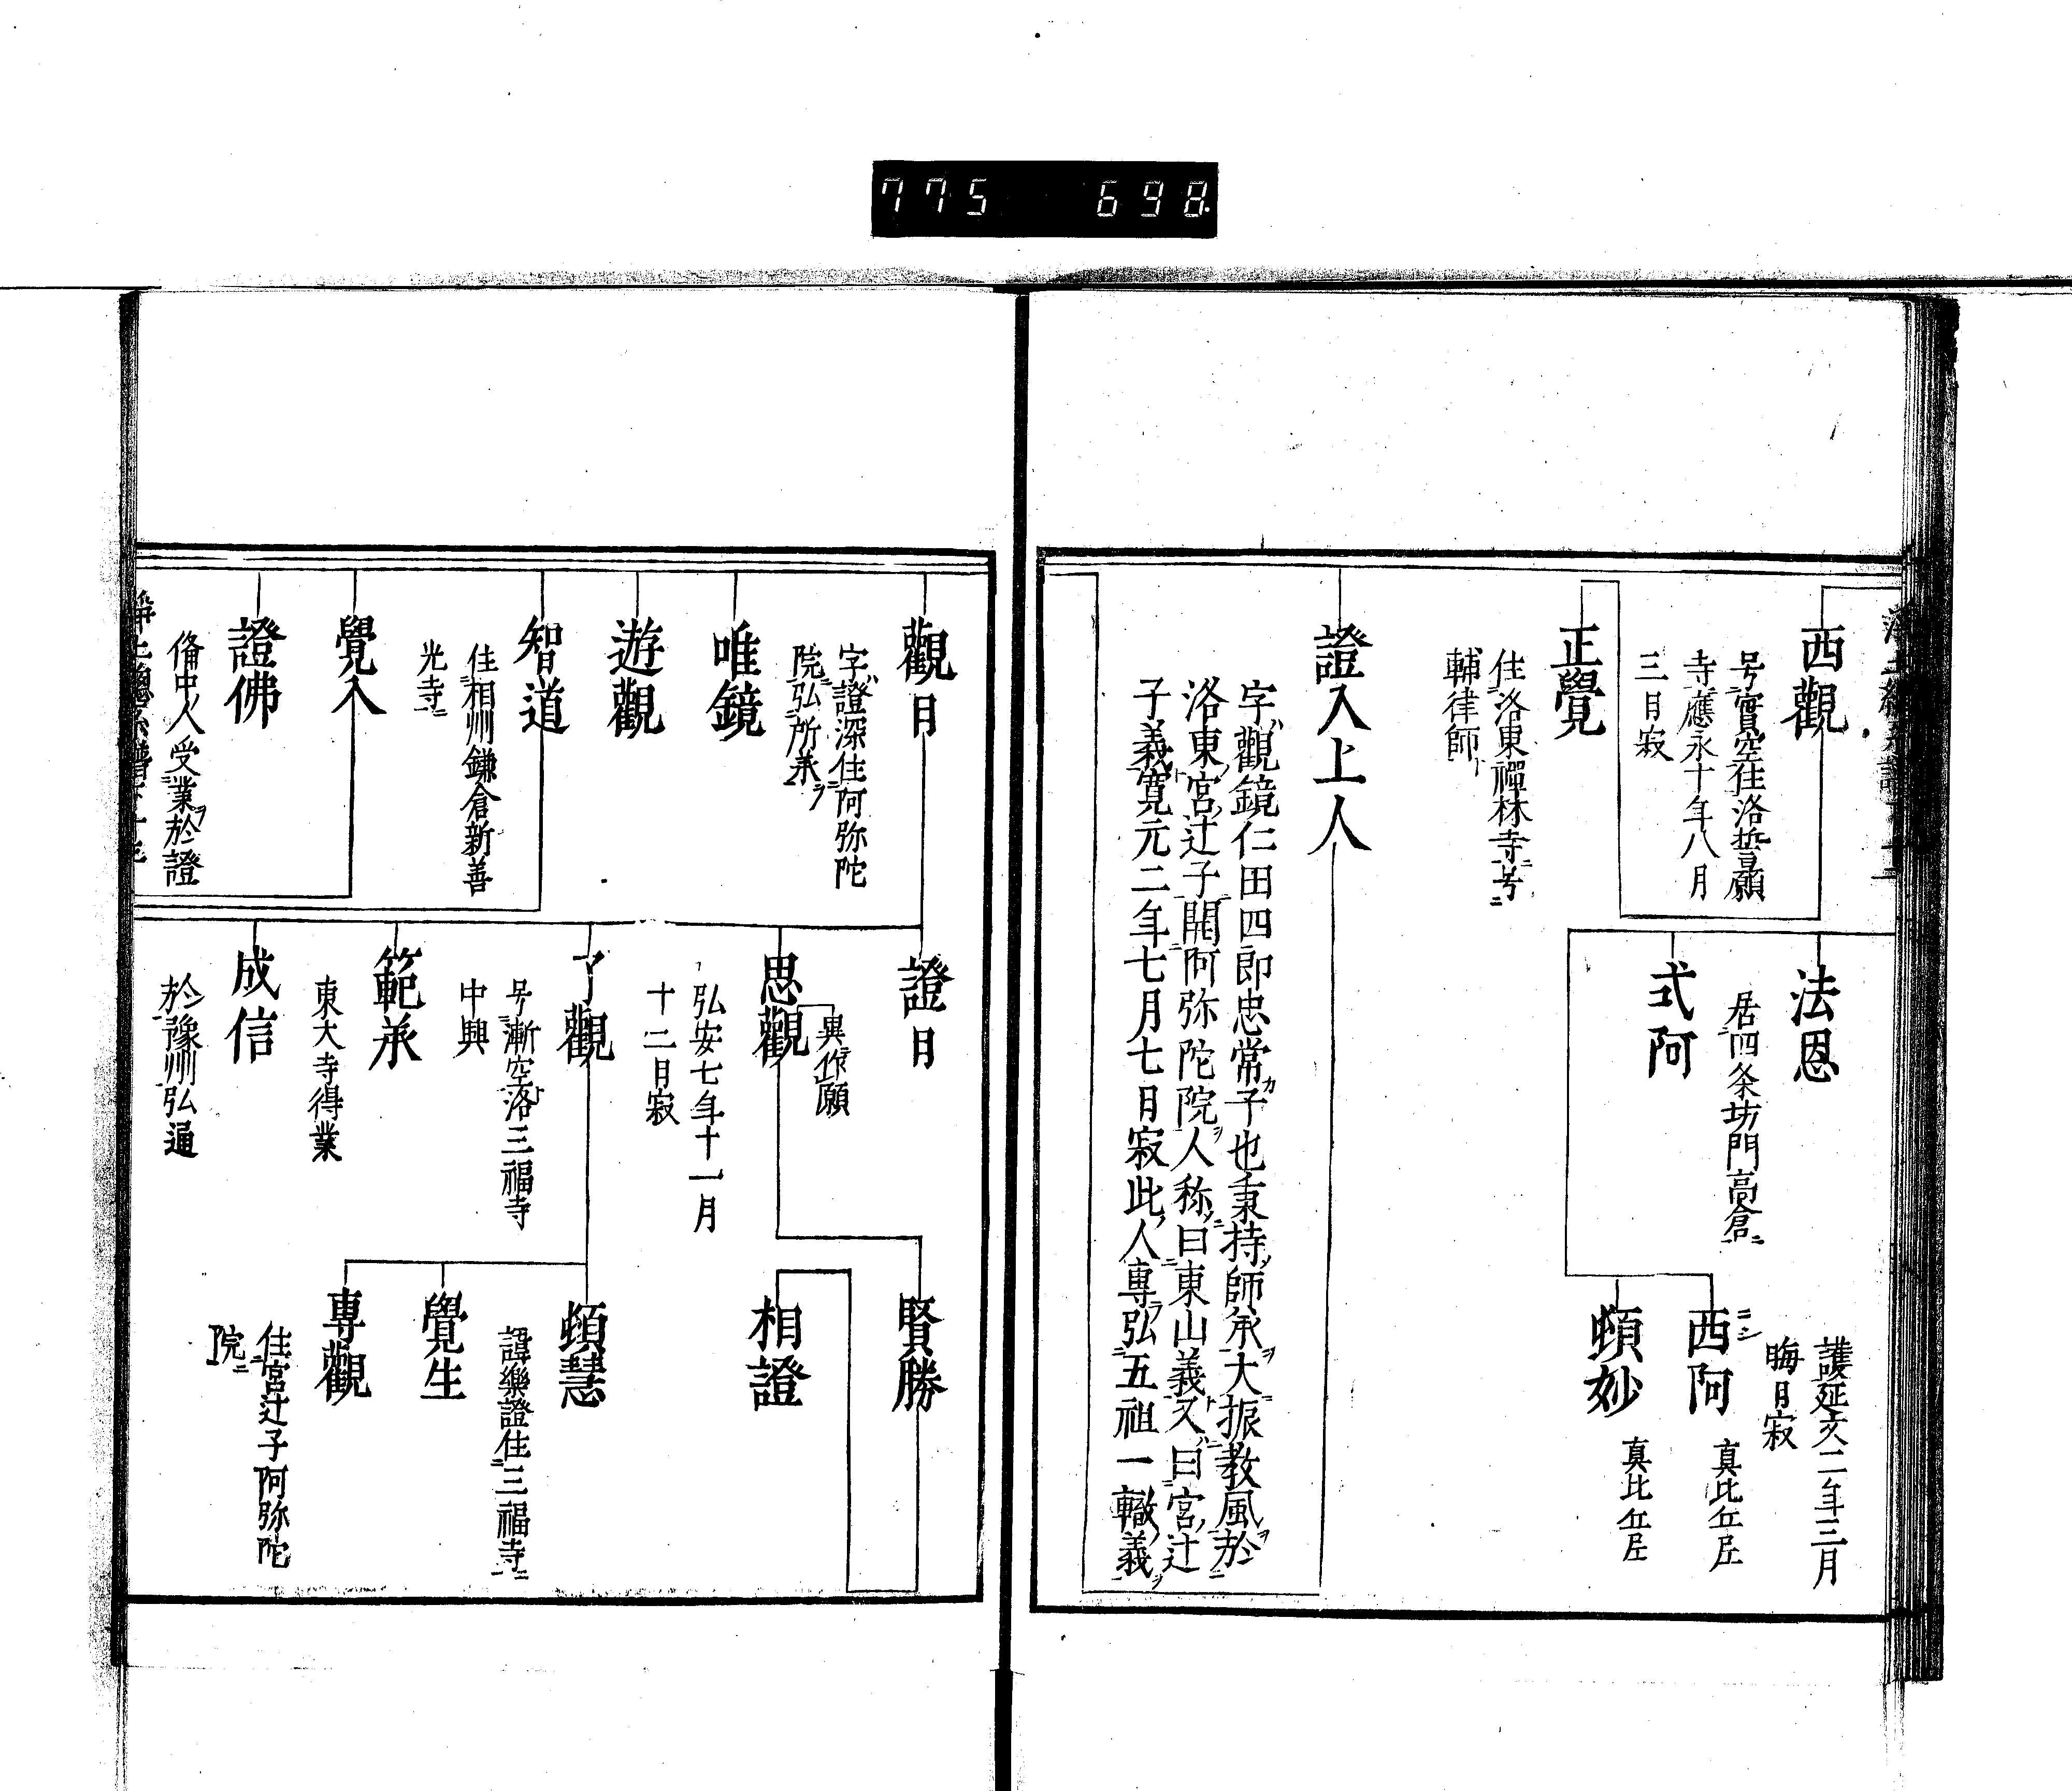 775 698
西觀
号實空住洛誓願
寺應永十年八月
三日寂
正覺
住洛東禪林寺号
輔律師
法恩
居四条坊門高倉
式阿
護延文二年三月
晦日寂
西阿
真比丘尼
頓妙
真比丘尼
證入上人
字觀鏡仁田四郎忠常子也秉持師承大振教風於
洛東宮辻子開阿弥陀院人称曰東山義又曰宮辻
子義寛元二年七月七日寂此人專弘五祖一轍義
觀日
字證深住阿弥陀
院弘所承
唯鏡
遊觀
智道
住相州鎌倉新善
光寺
覺入
證佛
俻中人受業於證
證日
思觀
異作願
弘安七年十一月
十二日寂
了觀
号漸空洛三福寺
中興
範承
東大寺得業
成信
於豫州弘通
賢勝
相證
頓慧
諱樂證住三福寺
覺生
專觀
住宮辻子阿弥陀
院